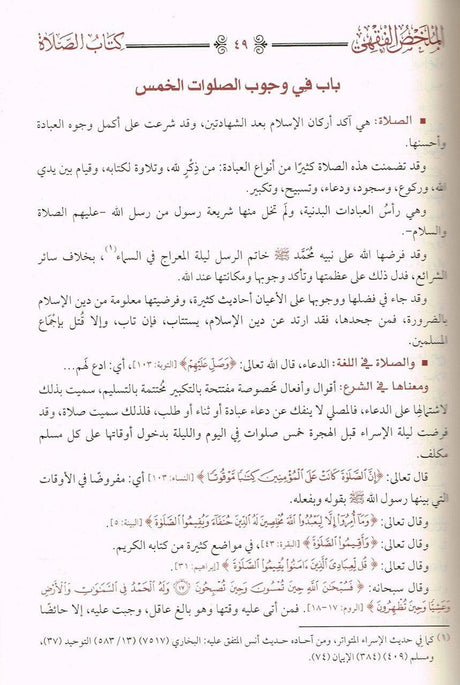 الملخص الفقهي ٤٩ كتاب الصلاة
باب في وجوب الصلوات الخمس
■ الصلاة: هي آكد أركان الإسلام بعد الشهادتين، وقد شرعت على أكمل وجوه العبادة
وأحسنها.
وقد تضمنت هذه الصلاة كثيرًا من أنواع العبادة: من ذِكْرٍ لله، وتلاوة لكتابه، وقيام بين يدي
الله، وركوع، وسجود، ودعاء، وتسبيح، وتكبير.
وهي رأسُ العبادات البدنية، ولَم تخل منها شريعة رسول من رسل الله -عليهم الصلاة
والسلام-.
وقد فرضها الله على نبيه مُحَمَّد ﷺ خاتم الرسل ليلة المعراج في السماء(١)، بخلاف سائر
الشرائع، فدل ذلك على عظمتها وتأكد وجوبها ومكانتها عند الله.
وقد جاء في فضلها ووجوبها على الأعيان أحاديث كثيرة، وفرضيتها معلومة من دين الإسلام
بالضرورة، فمن جحدها، فقد ارتد عن دين الإسلام، يستتاب، فإن تاب، وإلا قُتل بإِجْمَاع
المسلمين.
■ والصلاة في اللغة: الدعاء، قال الله تعالى: ﴿وَصَلِّ عَلَيْهِمْ﴾ [التوبة: ١٠٣]، أي: ادع لَهم...
ومعناها في الشرع: أقوال وأفعال مَخصوصة مفتتحة بالتكبير مُختتمة بالتسليم، سميت بذلك
لاشتمالِها على الدعاء، فالمصلي لا ينفك عن دعاء عبادة أو ثناء أو طلب، فلذلك سميت صلاة، وقد
فرضت ليلة الإسراء قبل الهجرة خمس صلوات في اليوم والليلة بدخول أوقاتها على كل مسلم
مكلف.
قال تعالى: ﴿إِنَّ الصَّلَوٰةَ كَانَتْ عَلَى الْمُؤْمِنِينَ كِتَٰبًا مَّوْقُوتًا﴾ [النساء: ١٠٣] أي: مفروضًا في الأوقات
التي بينها رسول الله ﷺ بقوله وبفعله.
وقال تعالى: ﴿وَمَآ أُمِرُوٓا۟ إِلَّا لِيَعْبُدُوا۟ اللَّهَ مُخْلِصِينَ لَهُ الدِّينَ حُنَفَآءَ وَيُقِيمُوا۟ الصَّلَوٰةَ﴾ [البينة: ٥].
وقال تعالى: ﴿وَأَقِيمُوا۟ الصَّلَوٰةَ﴾ [البقرة: ٤٣]، في مواضع كثيرة من كتابه الكريم.
وقال تعالى: ﴿قُل لِّعِبَادِىَ الَّذِينَ ءَامَنُوا۟ يُقِيمُوا۟ الصَّلَوٰةَ﴾ [إبراهيم: ٣١].
وقال سبحانه: ﴿فَسُبْحَٰنَ اللَّهِ حِينَ تُمْسُونَ وَحِينَ تُصْبِحُونَ ۝١٧ وَلَهُ الْحَمْدُ فِى السَّمَٰوَٰتِ وَالْأَرْضِ
وَعَشِيًّا وَحِينَ تُظْهِرُونَ﴾ [الروم: ١٧-١٨]. فمن أتى عليه وقتها وهو بالغ عاقل، وجبت عليه، إلا حائضًا
(١) كما في حديث الإسراء المتواتر، ومن آحاده حديث أنس المتفق عليه: البخاري (٧٥١٧) (١٣/ ٥٨٣) التوحيد (٣٧)،
ومسلم (٤٠٩) (٣٨٤) الإيمان (٧٤).